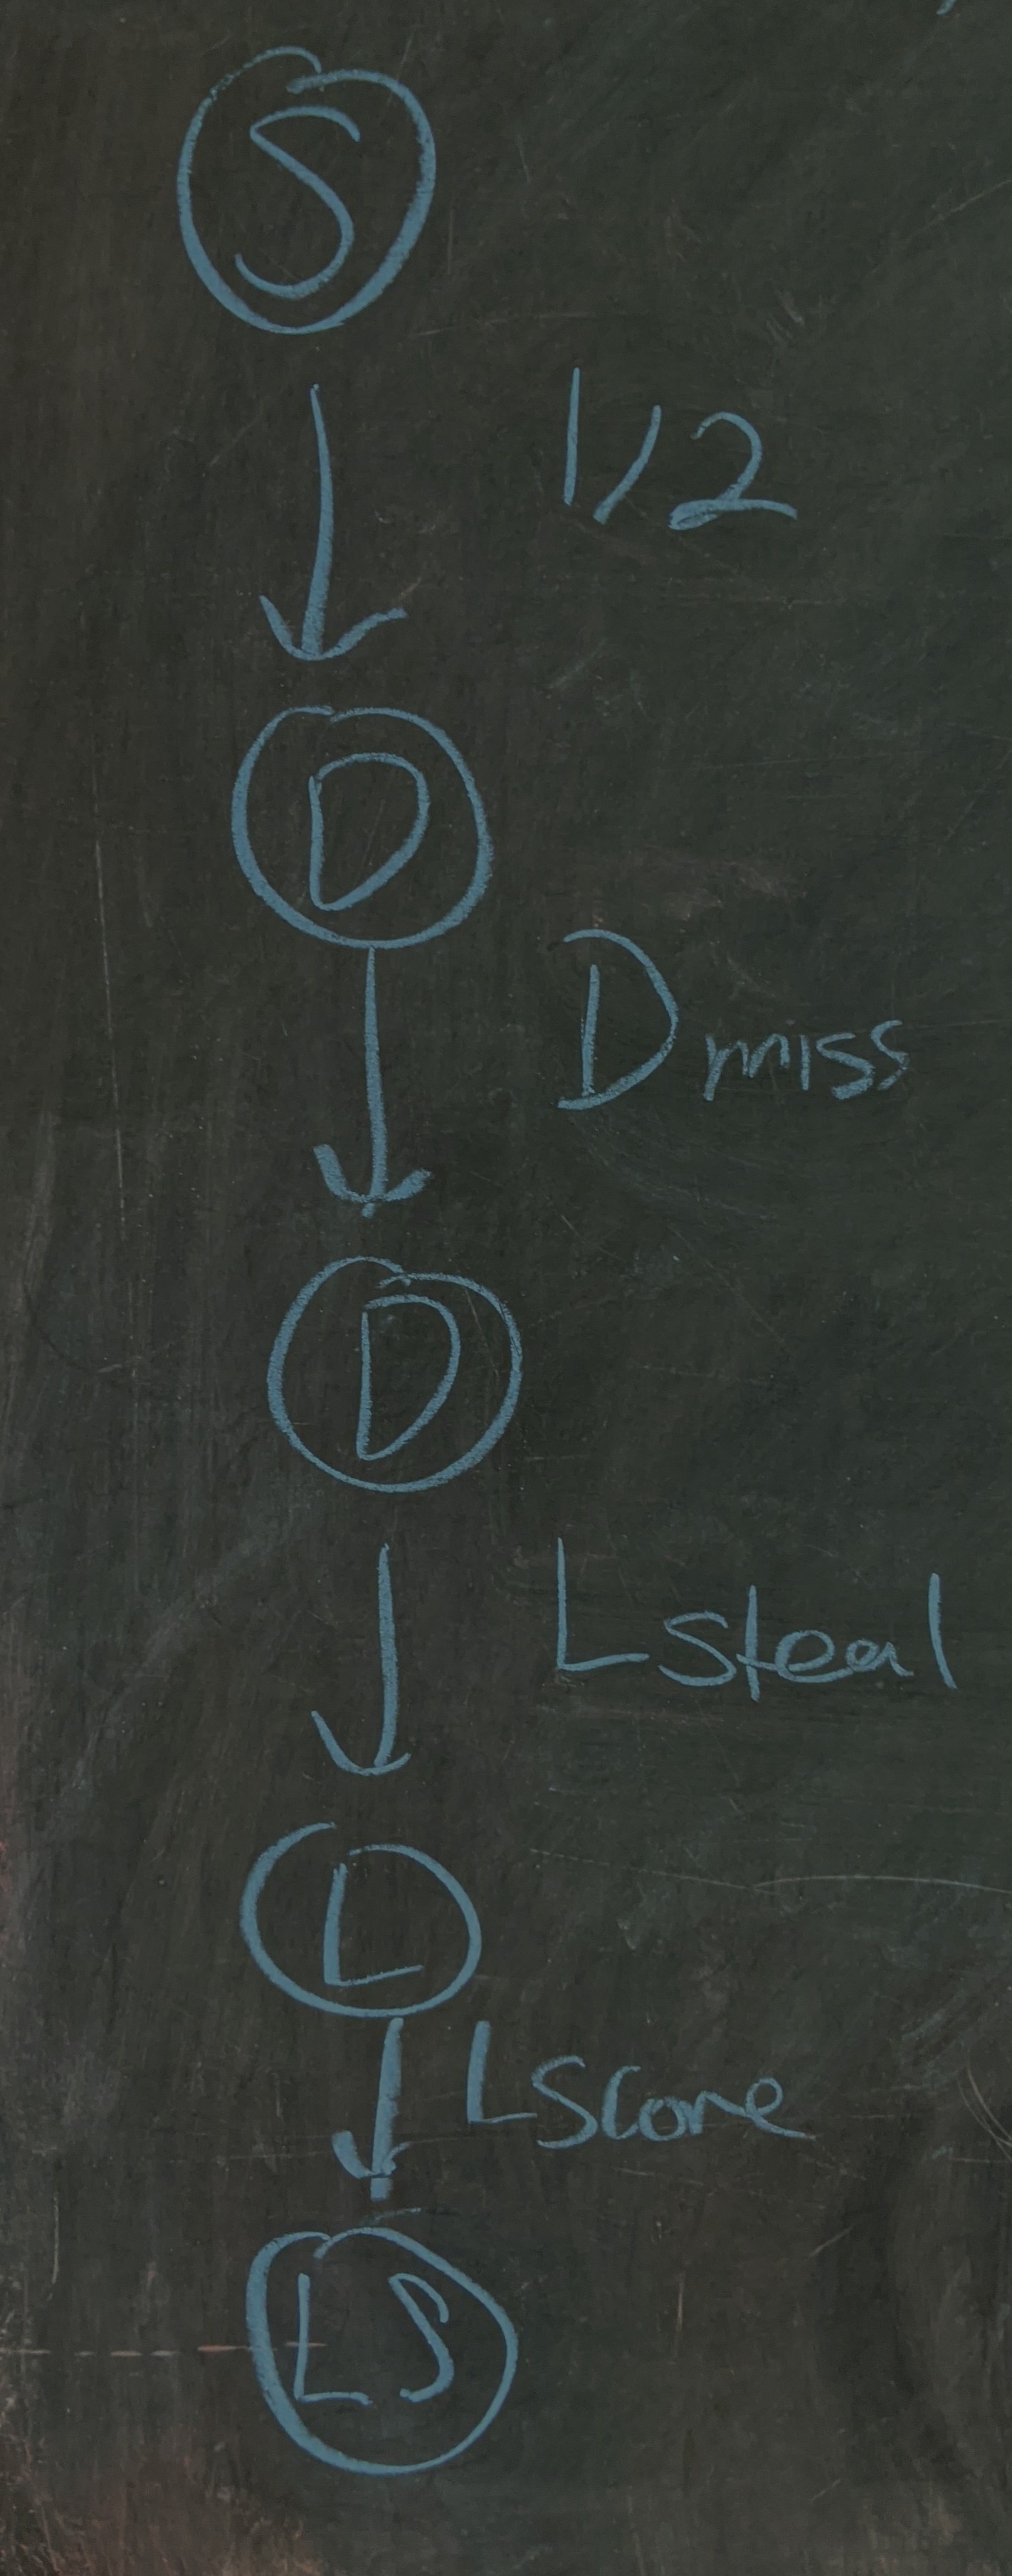 S
1/2
D
D miss
D
L steal
L
L score
LS